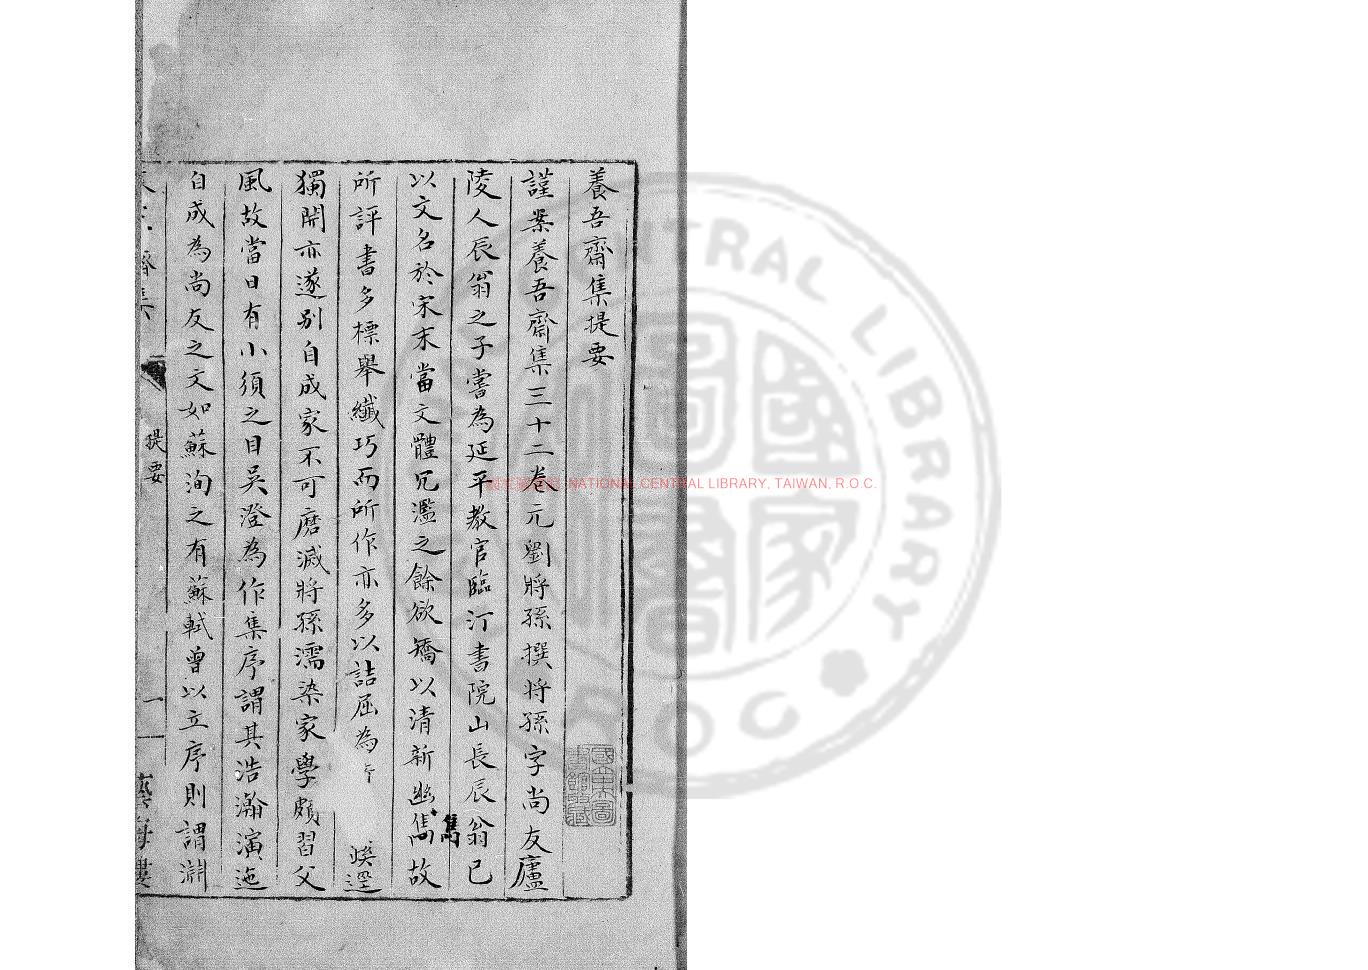 養吾齋集提要
謹案養吾齋集三十二卷元劉將孫撰將孫字尚友廬
陵人辰翁之子嘗為延平教官臨汀書院山長辰翁已
以文名於宋末當文體冗濫之餘欲矯以清新幽雋故
雋
所評書多標舉纖巧而所作亦多以詰屈為蹊逕
獨開亦遂别自成家不可磨滅將孫濡染家學頗習父
風故當日有小須之目吳澄為作集序謂其浩瀚演迤
自成為尚友之文如蘇洵之有蘇軾曾以立序則謂淵
齋集 提要 一 藝海樓
NATIONAL CENTRAL LIBRARY, TAIWAN, R.O.C.
CENTRAL LIBRARY
ROC
國家圖書